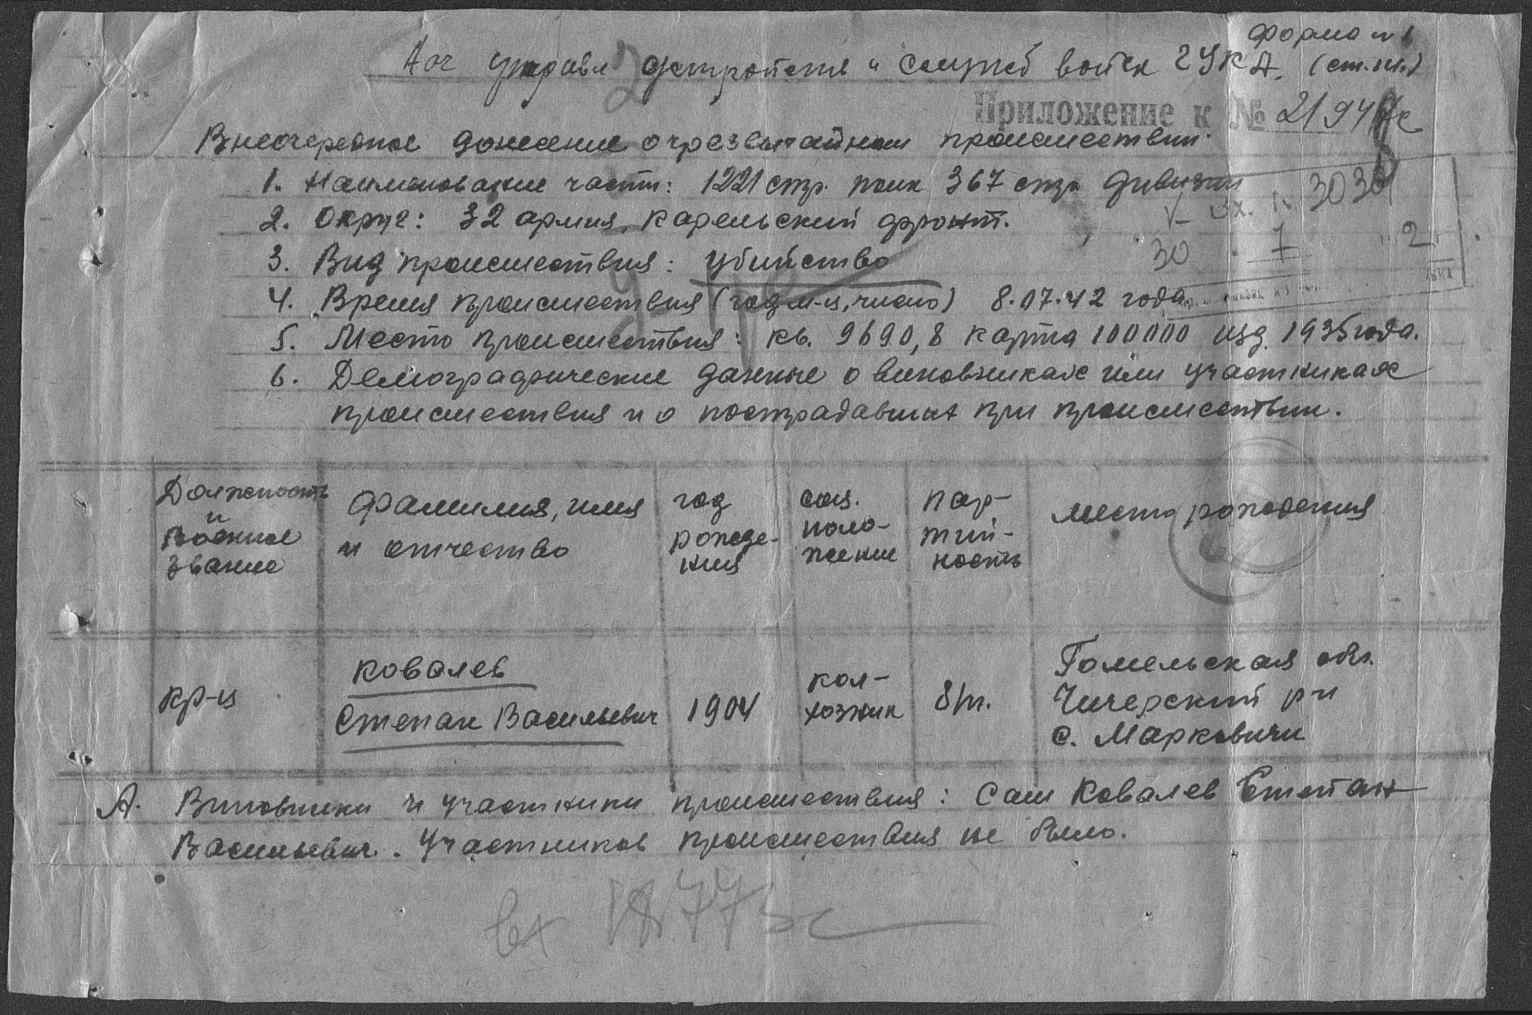 Форма №1
Нач управл устройства и службы войск ГУКА. (ст.пл.)
Приложение к № 2194
Внеочередное донесение о чрезвычайном происшествии.
1. Наименование части: 1221 стр. полк 367 стр. дивизии
вх. № 3030
2. Округ: 32 армия, Карельский фронт.
3. Вид происшествия: убийство
30 7 2
4. Время происшествия (год м-ц, число) 8.07.42 года
5. Место происшествия: кв. 9690,8 карта 100000 изд. 1935 года.
6. Демографические данные о виновниках или участниках
происшествия и о пострадавших при происшествии.
Должность
и
военное
звание
Фамилия, имя
и отчество
год
рожде-
ния
соц.
поло-
жение
пар-
тий-
ность
место рождения
кр-ц
Ковалев
Степан Васильевич
1904
кол-
хозник
б/п.
Гомельская обл.
Чичерский р-н
с. Марковичи
А. Виновники и участники происшествия: Сам Ковалев Степан
Васильевич. Участников происшествия не было.
вх 1877с